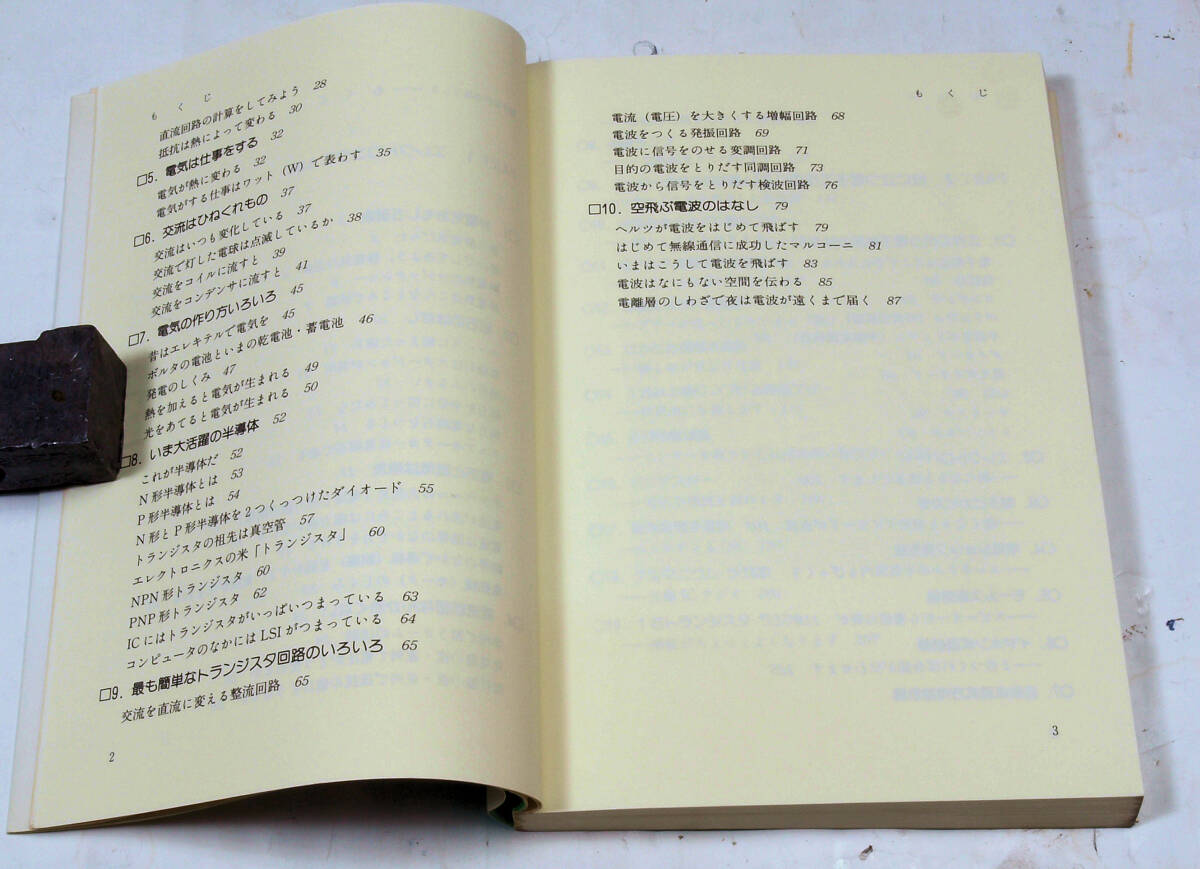 もくじ
直流回路の計算をしてみよう 28
抵抗は熱によって変わる 30
□5. 電気は仕事をする 32
電気が熱に変わる 32
電気がする仕事はワット(W)で表わす 35
□6. 交流はひねくれもの 37
交流はいつも変化している 37
交流で灯した電球は点滅しているか 38
交流をコイルに流すと 39
交流をコンデンサに流すと 41
□7. 電気の作り方いろいろ 45
昔はエレキテルで電気を 45
ボルタの電池といまの乾電池・蓄電池 46
発電のしくみ 47
熱を加えると電気が生まれる 49
光をあてると電気が生まれる 50
□8. いま大活躍の半導体 52
これが半導体だ 52
N形半導体とは 53
P形半導体とは 54
N形とP形半導体を2つくっつけたダイオード 55
トランジスタの祖先は真空管 57
エレクトロニクスの米「トランジスタ」 60
NPN形トランジスタ 60
PNP形トランジスタ 62
ICにはトランジスタがいっぱいつまっている 63
コンピュータのなかにはLSIがつまっている 64
□9. 最も簡単なトランジスタ回路のいろいろ 65
交流を直流に変える整流回路 65
2
もくじ
電流(電圧)を大きくする増幅回路 68
電波をつくる発振回路 69
電波に信号をのせる変調回路 71
目的の電波をとりだす同調回路 73
電波から信号をとりだす検波回路 76
□10. 空飛ぶ電波のはなし 79
ヘルツが電波をはじめて飛ばす 79
はじめて無線通信に成功したマルコーニ 81
いまはこうして電波を飛ばす 83
電波はなにもない空間を伝わる 85
電離層のしわざで夜は電波が遠くまで届く 87
3